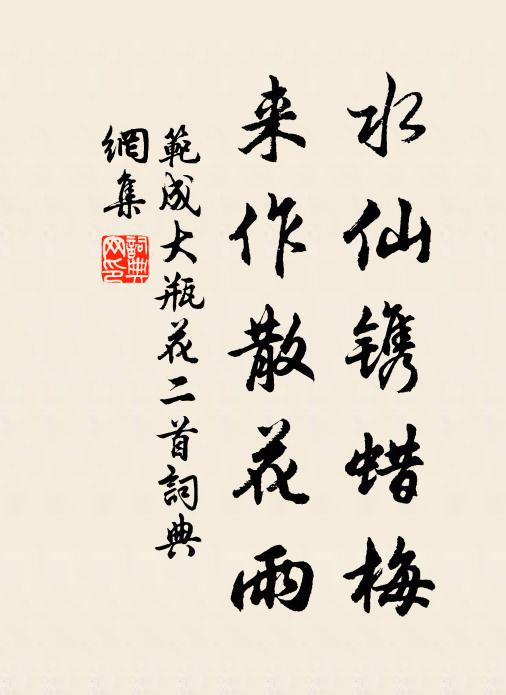 水仙镌蜡梅
来作散花雨
範成大瓶花二首詞典
網集
詞典
网印